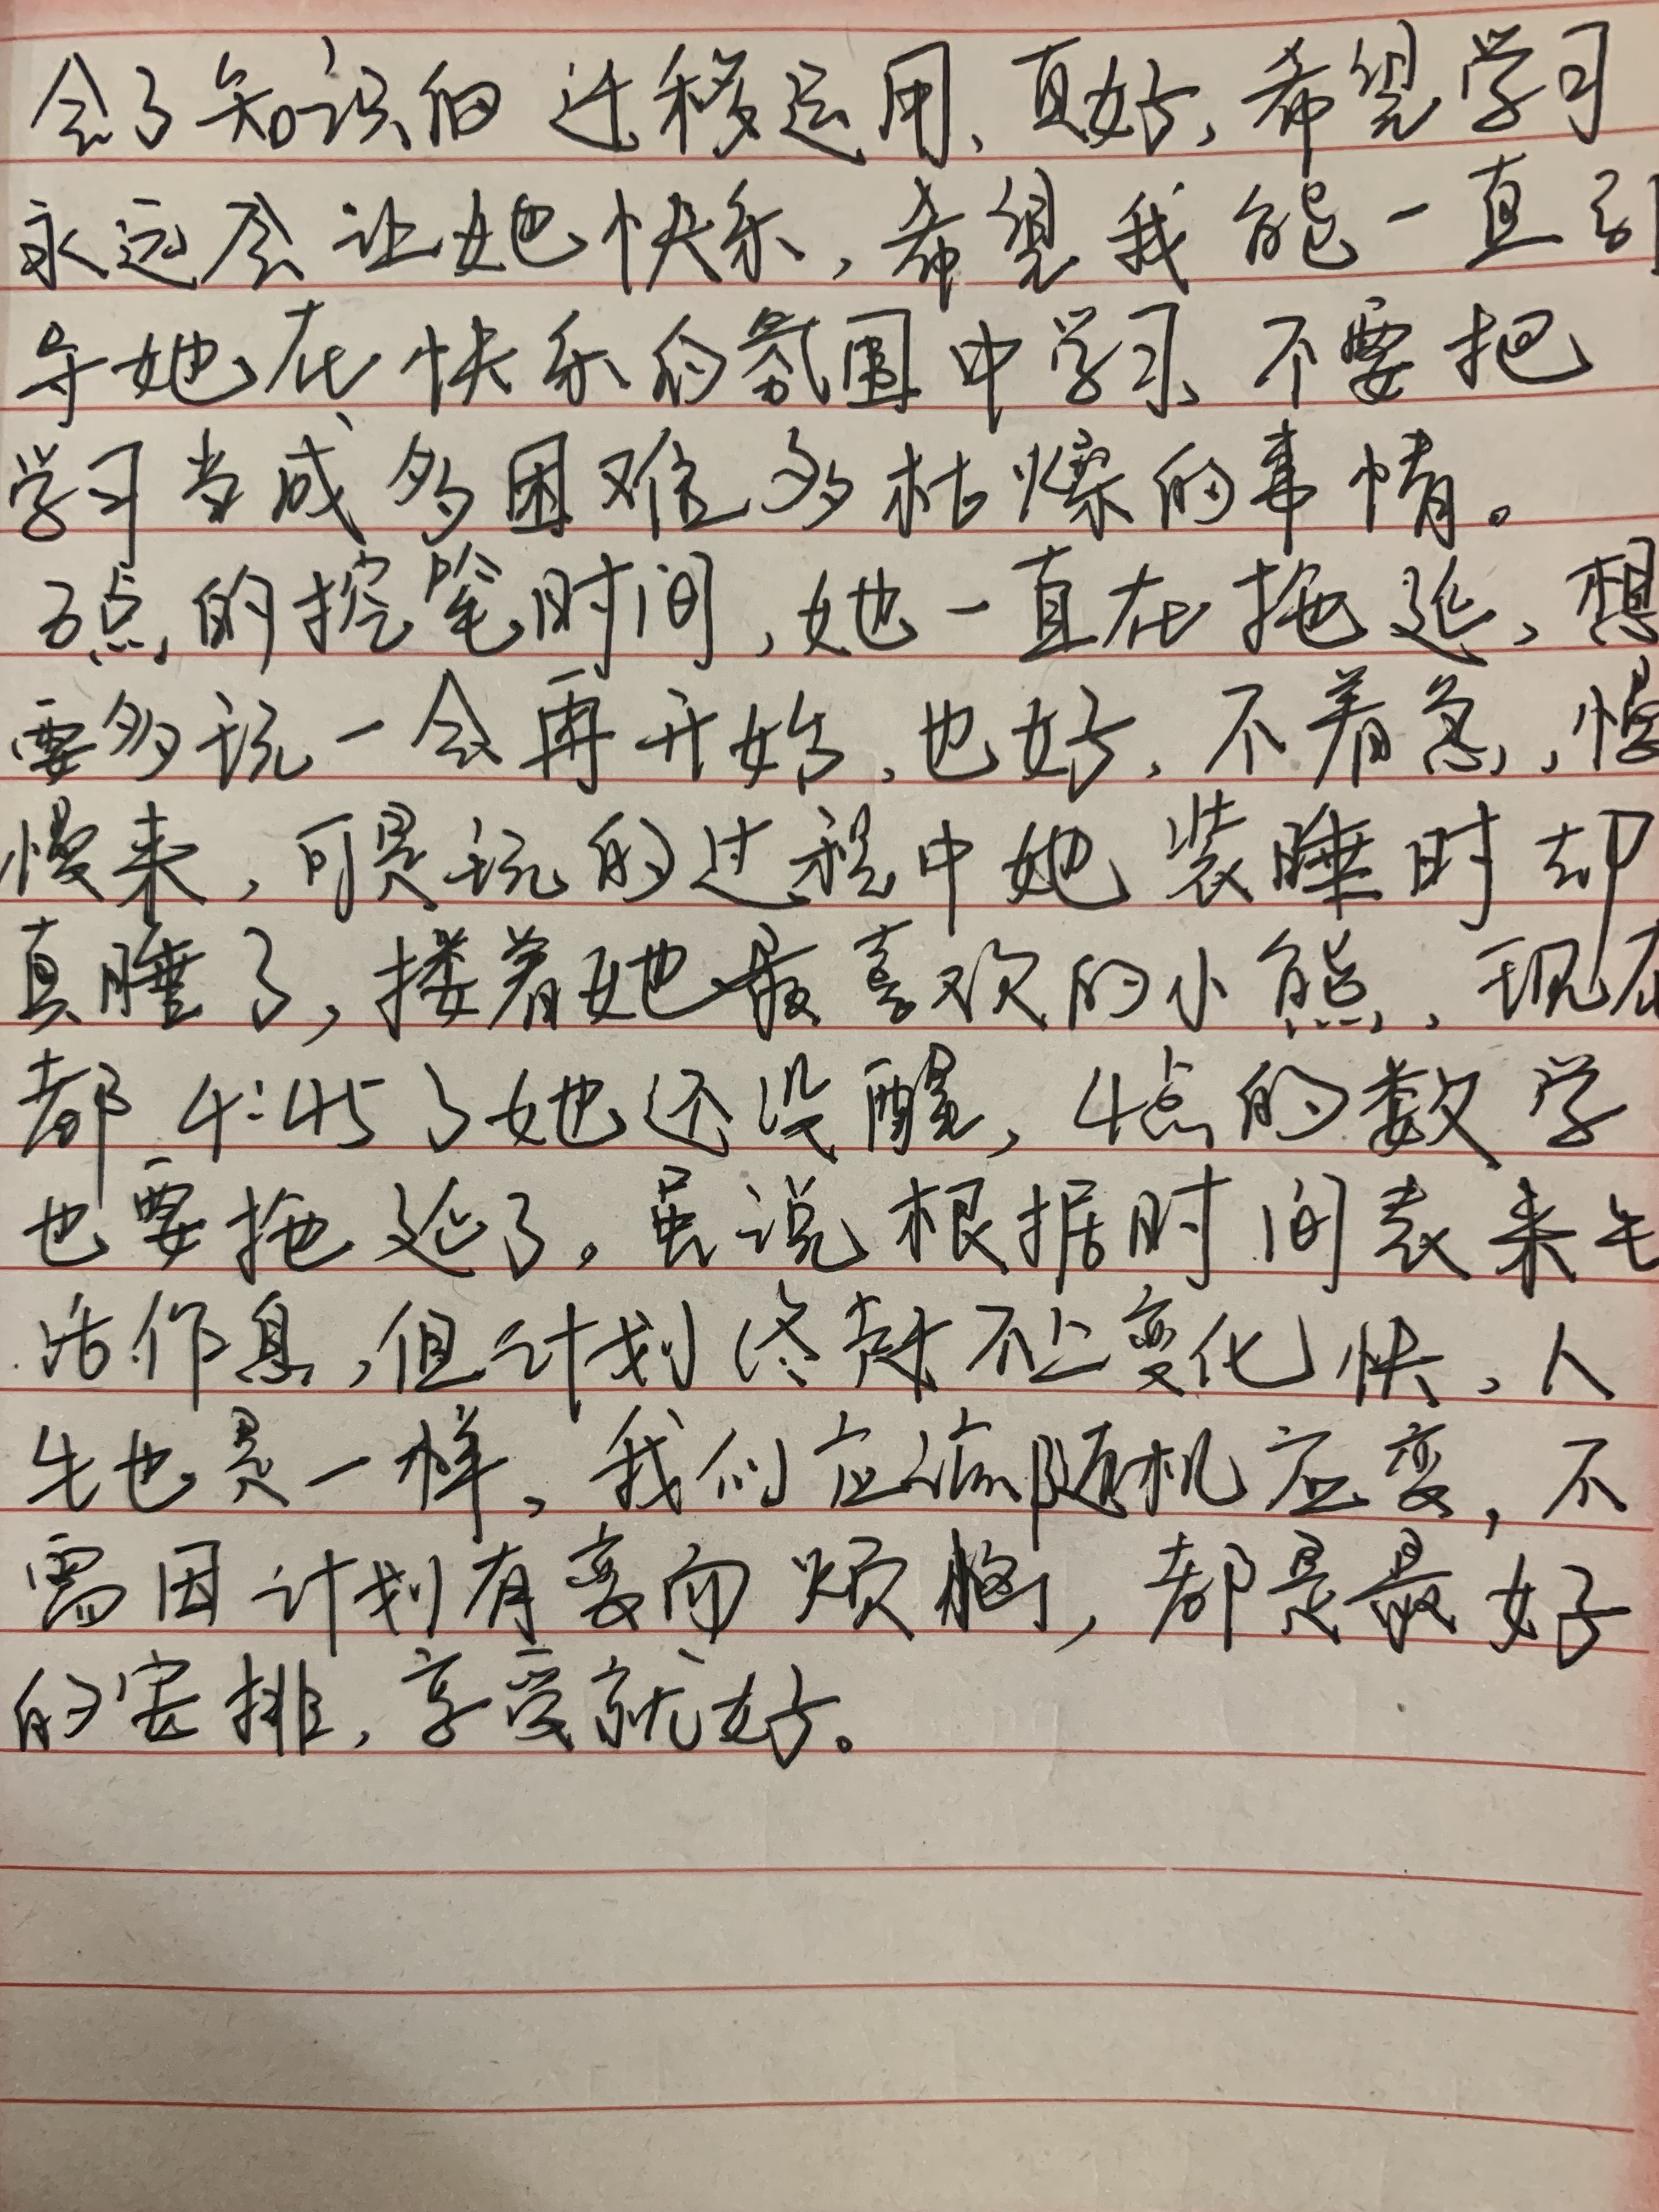 会了知识的迁移运用、真好，希望学习
永远会让她快乐，希望我能一直引
导她在快乐的氛围中学习、不要把
学习当成多困难多枯燥的事情。
3点的控笔时间，她一直在拖延，想
要多玩一会再开始，也好，不着急，慢
慢来，可是玩的过程中她装睡时却
真睡了，搂着她最喜欢的小熊，现在
都4:45了她还没醒，4点的数学
也要拖延了。虽说根据时间表来生
活作息，但计划终赶不上变化快，人
生也是一样，我们应该随机应变，不
需因计划有变而烦恼，都是最好
的安排，享受就好。